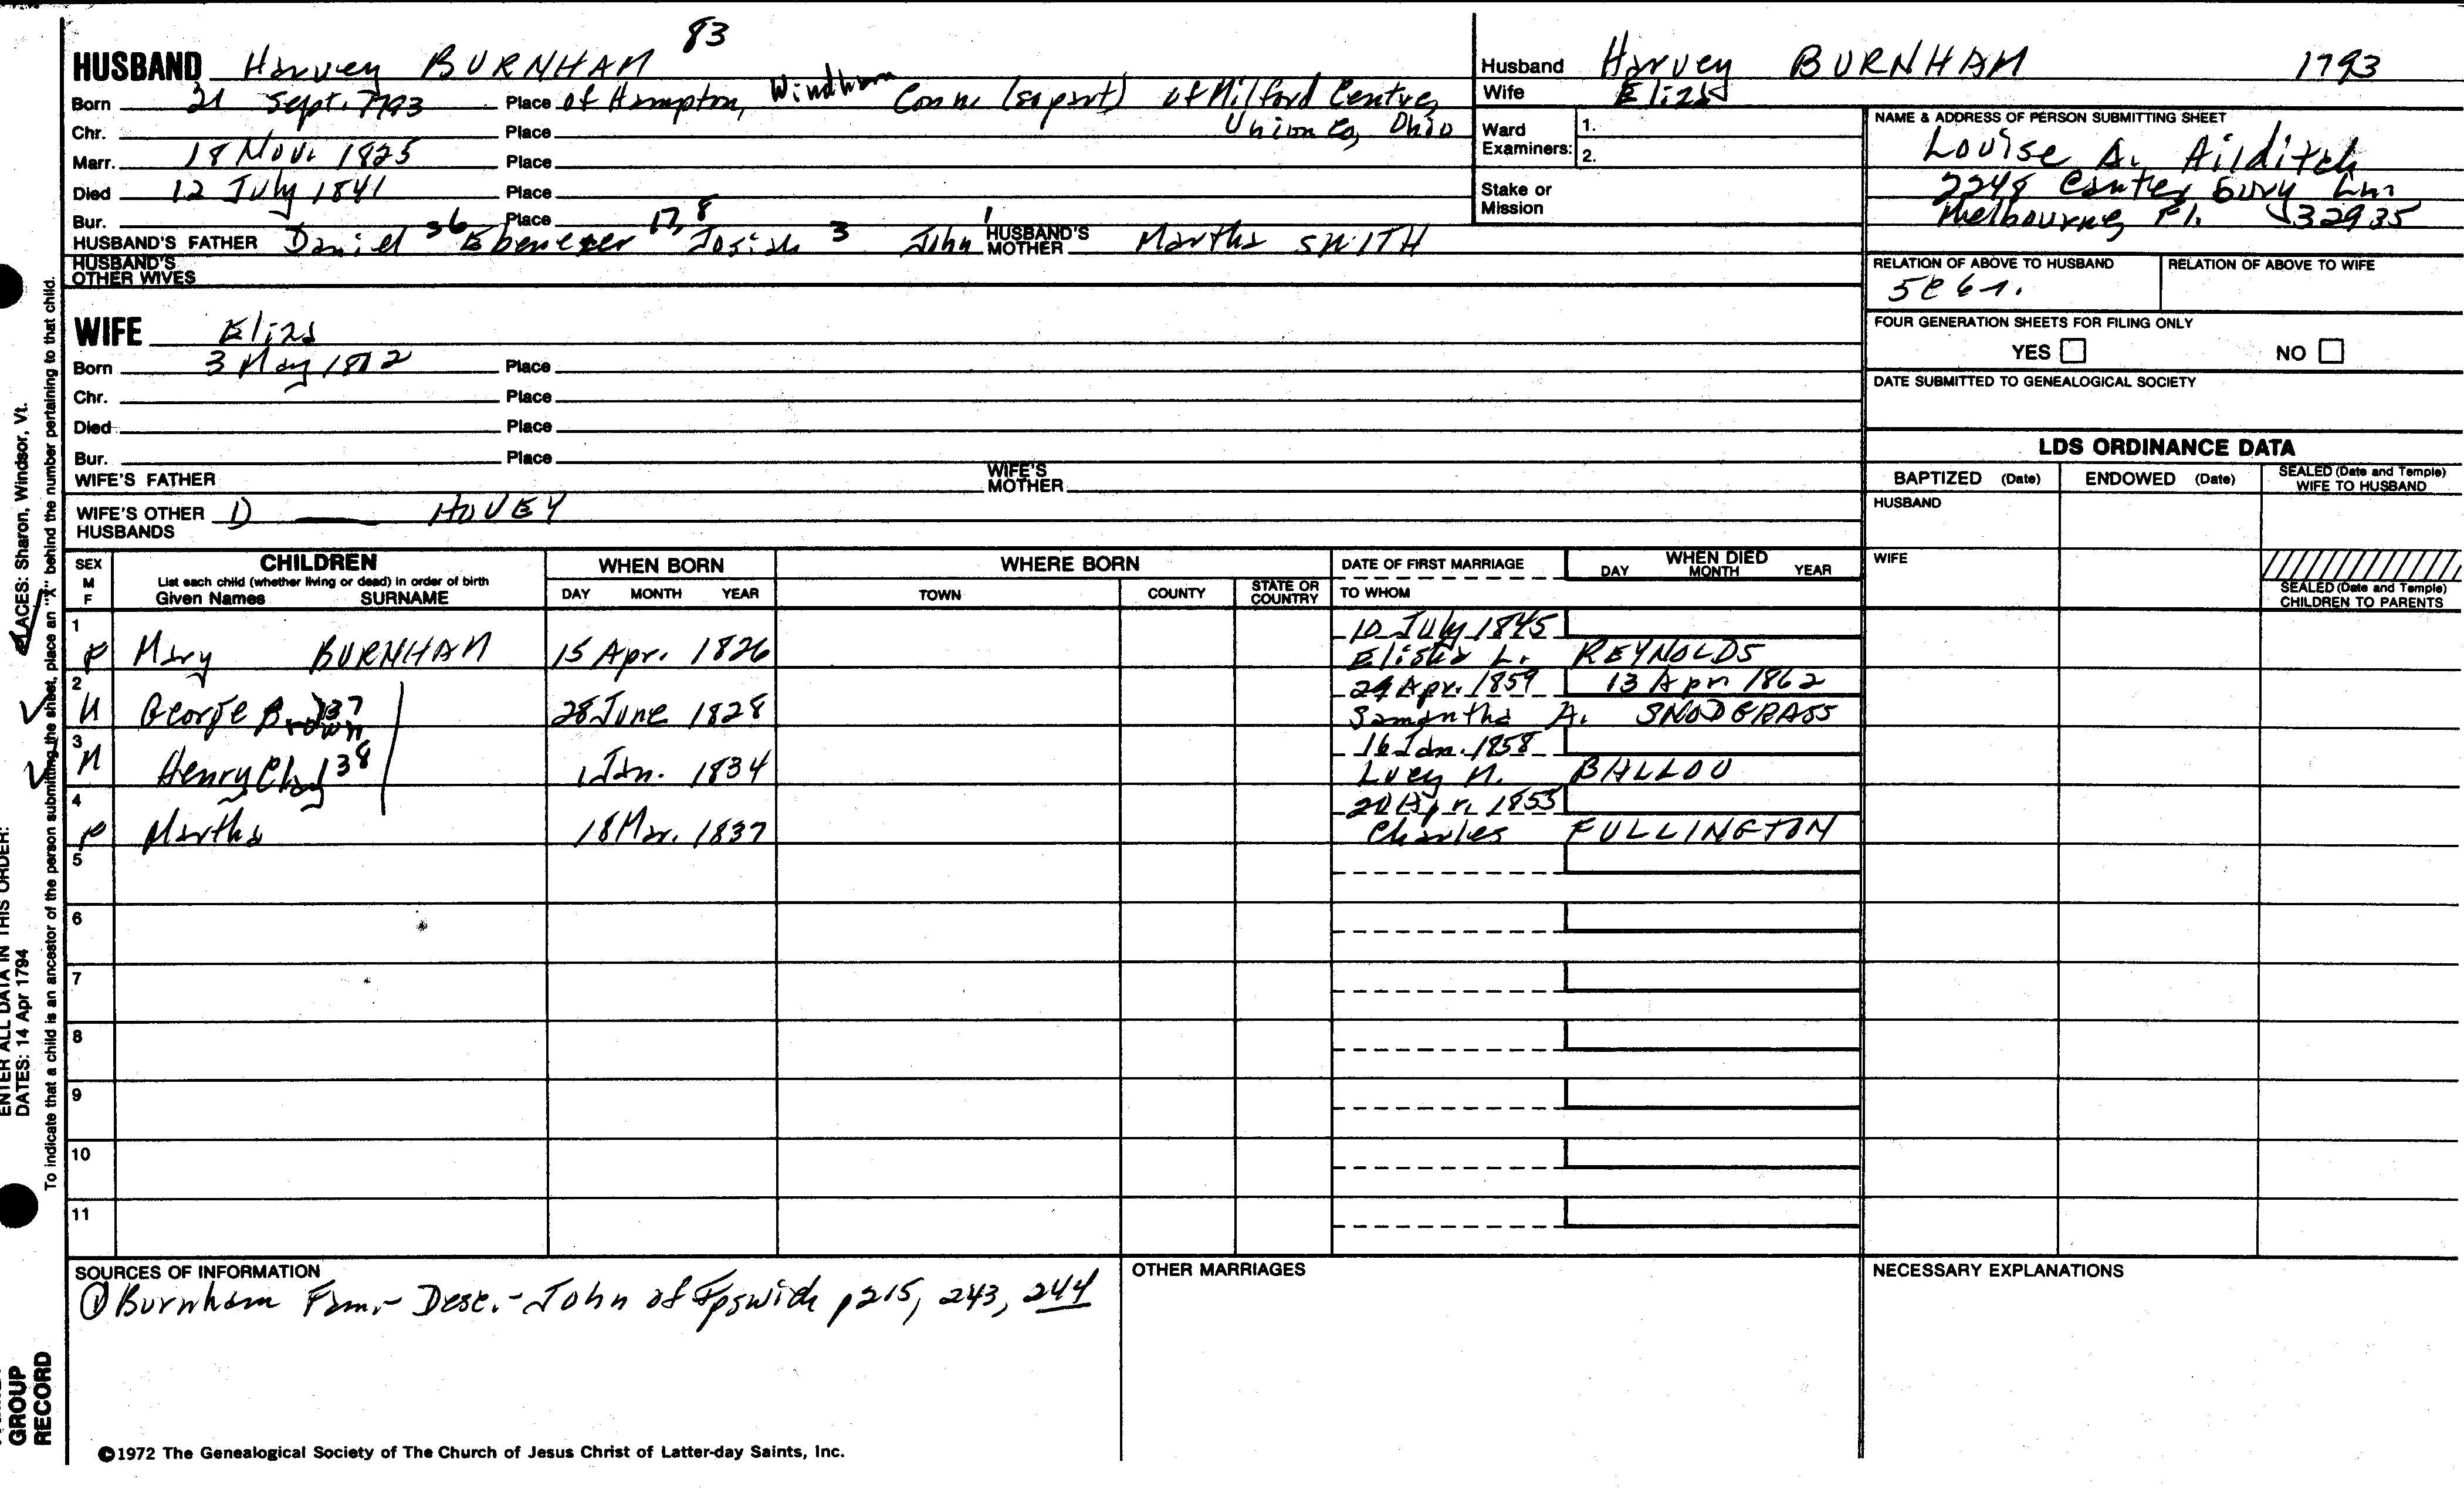 83
HUSBAND Harvey BURNHAM
Born 21 Sept. 1793 Place of Hampton, Windham Conn. of Milford Centre,
Union Co, Ohio
Chr. Place
Marr. 18 Nov. 1825 Place
Died 12 July 1841 Place
Bur. Place
HUSBAND'S FATHER Daniel 36 Ebenezer 17, 8 Josiah 3 John 1 HUSBAND'S MOTHER Martha SMITH
HUSBAND'S OTHER WIVES
WIFE Eliza
Born 3 May 1802 Place
Chr. Place
Died Place
Bur. Place
WIFE'S FATHER WIFE'S MOTHER
WIFE'S OTHER HUSBANDS 1) HOVEY
Husband Harvey BURNHAM 1793
Wife Eliza
Ward Examiners: 1.
2.
Stake or Mission
NAME & ADDRESS OF PERSON SUBMITTING SHEET
Louise A.
2248 Ln.
Melbourne, Fl. 32935
RELATION OF ABOVE TO HUSBAND RELATION OF ABOVE TO WIFE
FOUR GENERATION SHEETS FOR FILING ONLY
YES NO
DATE SUBMITTED TO GENEALOGICAL SOCIETY
LDS ORDINANCE DATA
BAPTIZED (Date) ENDOWED (Date) SEALED (Date and Temple) WIFE TO HUSBAND
HUSBAND
WIFE
SEALED (Date and Temple) CHILDREN TO PARENTS
SEX M F CHILDREN WHEN BORN WHERE BORN DATE OF FIRST MARRIAGE WHEN DIED
List each child (whether living or dead) in order of birth
Given Names SURNAME DAY MONTH YEAR TOWN COUNTY STATE OR COUNTRY TO WHOM DAY MONTH YEAR
1 10 July 1845
F Mary BURNHAM 15 Apr. 1826 Elisha L. REYNOLDS
2 29 Apr. 1859 13 Apr 1862
M George Brown 137 28 June 1828 Samantha A. SNODGRASS
3 16 Jan. 1858
M Henry Clay 138 1 Jan. 1834 Lucy M. BALLOU
4 20 Apr. 1855
F Martha 18 Mar. 1837 Charles FULLINGTON
5
6
7
8
9
10
11
SOURCES OF INFORMATION
① Burnham Fam.- Desc.- John of Ipswich p215, 243, 244
OTHER MARRIAGES
NECESSARY EXPLANATIONS
©1972 The Genealogical Society of The Church of Jesus Christ of Latter-day Saints, Inc.
ENTER ALL DATA IN THIS ORDER:
DATES: 14 Apr 1794 PLACES: Sharon, Windsor, Vt.
To indicate that a child is an ancestor of the person submitting the sheet, place an "X" behind the number pertaining to that child.
GROUP
RECORD